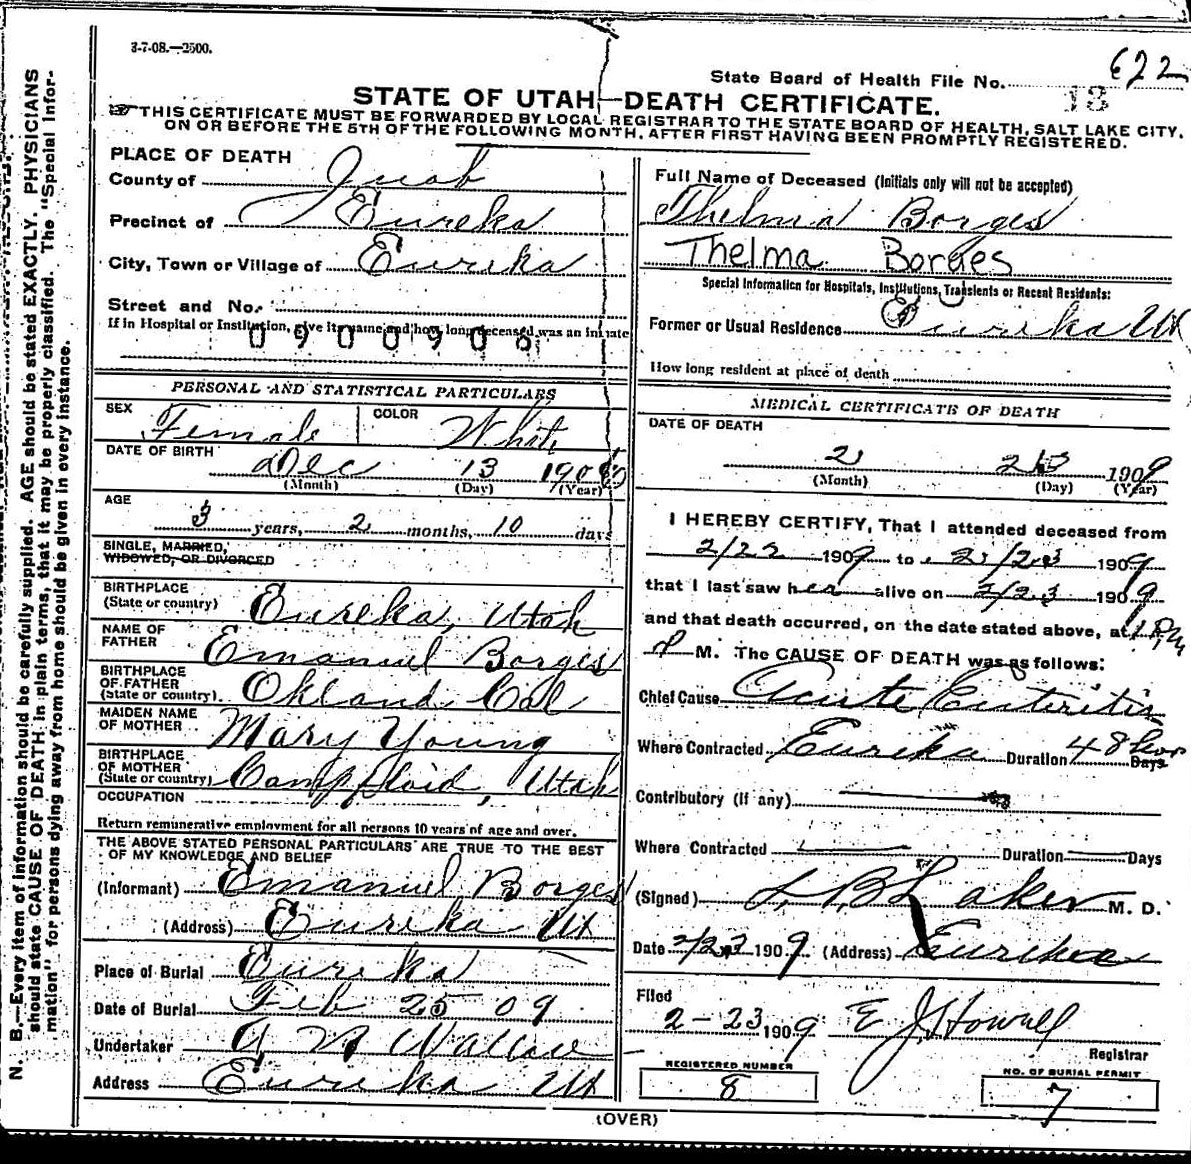 3-7-08.—2500.
622
State Board of Health File No. 13
STATE OF UTAH—DEATH CERTIFICATE.
THIS CERTIFICATE MUST BE FORWARDED BY LOCAL REGISTRAR TO THE STATE BOARD OF HEALTH, SALT LAKE CITY,
ON OR BEFORE THE 5TH OF THE FOLLOWING MONTH, AFTER FIRST HAVING BEEN PROMPTLY REGISTERED.
N. B.—Every item of information should be carefully supplied. AGE should be stated EXACTLY. PHYSICIANS
should state CAUSE OF DEATH in plain terms, that it may be properly classified. The "Special Infor-
mation" for persons dying away from home should be given in every instance.
PLACE OF DEATH
County of Juab
Precinct of Eureka
City, Town or Village of Eureka
Street and No.
If in Hospital or Institution, give its name and how long deceased was an inmate
PERSONAL AND STATISTICAL PARTICULARS
SEX Female COLOR White
DATE OF BIRTH
Dec 13 190
(Month) (Day) (Year)
AGE
3 years, 2 months, 10 days
SINGLE, MARRIED,
WIDOWED, OR DIVORCED
BIRTHPLACE
(State or country) Eureka, Utah
NAME OF
FATHER Emanuel Borges
BIRTHPLACE
OF FATHER
(State or country) Okland Cal
MAIDEN NAME
OF MOTHER Mary Young
BIRTHPLACE
OF MOTHER
(State or country) Camp Floid, Utah
OCCUPATION
Return remunerative employment for all persons 10 years of age and over.
THE ABOVE STATED PERSONAL PARTICULARS ARE TRUE TO THE BEST
OF MY KNOWLEDGE AND BELIEF
(Informant) Emanuel Borges
(Address) Eureka Ut
Place of Burial Eureka
Date of Burial Feb 25 09
Undertaker Wallace
Address Eureka Ut
Full Name of Deceased (Initials only will not be accepted)
Thelma Borges
Thelma Borges
Special Information for Hospitals, Institutions, Transients or Recent Residents:
Former or Usual Residence Eureka Ut
How long resident at place of death
MEDICAL CERTIFICATE OF DEATH
DATE OF DEATH
2 23 1909
(Month) (Day) (Year)
I HEREBY CERTIFY, That I attended deceased from
2/22 1909 to 2/23 1909
that I last saw her alive on 2/23 1909
and that death occurred, on the date stated above, at 1 P.M
P M. The CAUSE OF DEATH was as follows:
Chief Cause Acute Enteritis
Where Contracted Eureka Duration 48 hours Days
Contributory (if any)
Where Contracted Duration Days
(Signed) Laker M. D.
Date 2/23 1909 (Address) Eureka
Filed
2-23 1909 E J Howell
Registrar
REGISTERED NUMBER
8
NO. OF BURIAL PERMIT
7
(OVER)